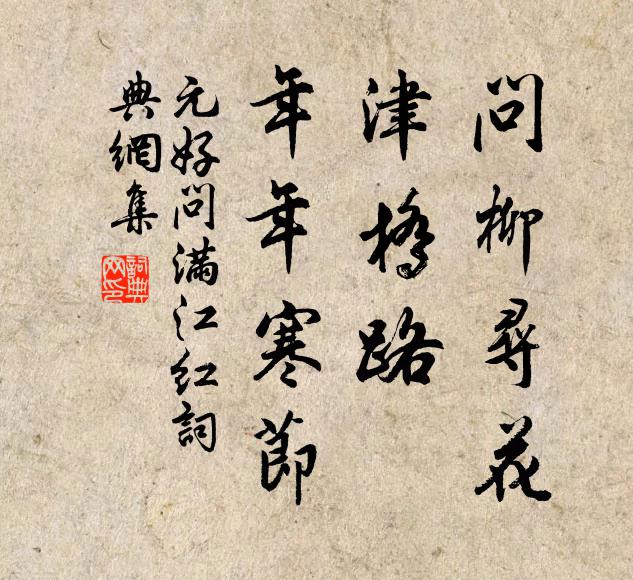 問柳尋花
津橋路
年年寒節
元好問滿江紅詞
典網集
詞典網印